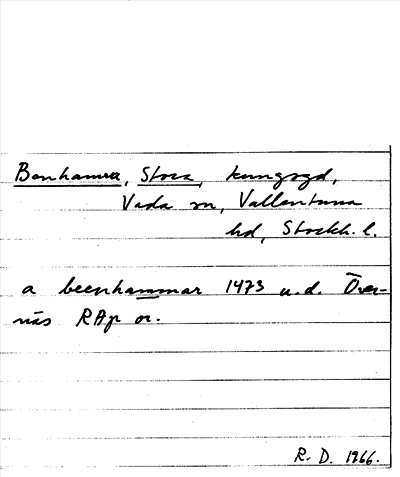 Benhamra, Stora, kungsgd,
Vada sn, Vallentuna
hd, Stockh. l.
a beenhammar 1473 u.d. Över-
näs RAp or.
R. D. 1966.